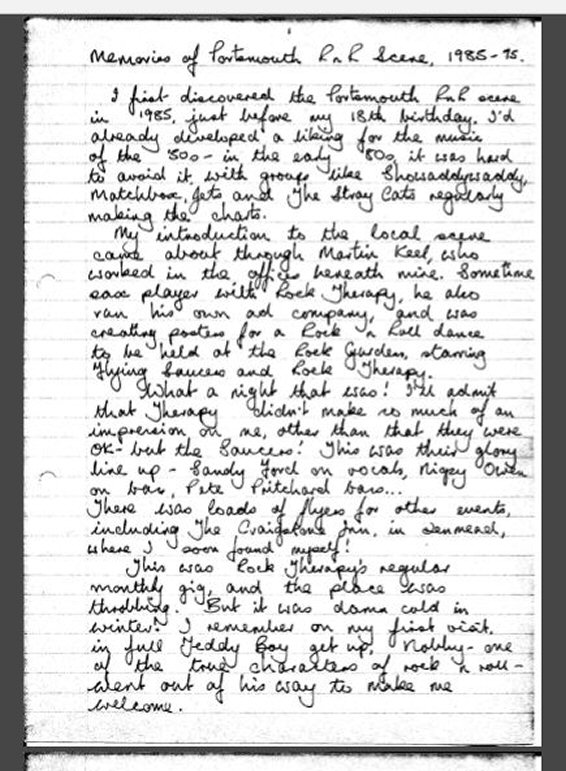 Memories of Portsmouth RnR Scene, 1985-95.
I first discovered the Portsmouth RnR scene
in 1985, just before my 18th birthday. I'd
already developed a liking for the music
of the '50s - in the early '80s, it was hard
to avoid it, with groups like Showaddywaddy,
Matchbox, Jets and The Stray Cats regularly
making the charts.
My introduction to the local scene
came about through Martin Keel, who
worked in the offices beneath mine. Sometime
sax player with Rock Therapy, he also
ran his own ad company, and was
creating posters for a Rock 'n Roll dance
to be held at the Rock Gardens, starring
Flying Saucers and Rock Therapy.
What a night that was! I'll admit
that Therapy didn't make so much of an
impression on me, other than that they were
OK - but the Saucers! This was their glory
line up - Sandy Ford on vocals, Owen
on bar, Pete Pritchard bass...
There was loads of flyers for other events,
including The Inn, in Denmead,
where I soon found myself!
This was Rock Therapy's regular
monthly gig, and the place was
throbbing. But it was damn cold in
winter! I remember on my first visit,
in full Teddy Boy get up, Nobby - one
of the true characters of rock n roll -
went out of his way to make me
welcome.